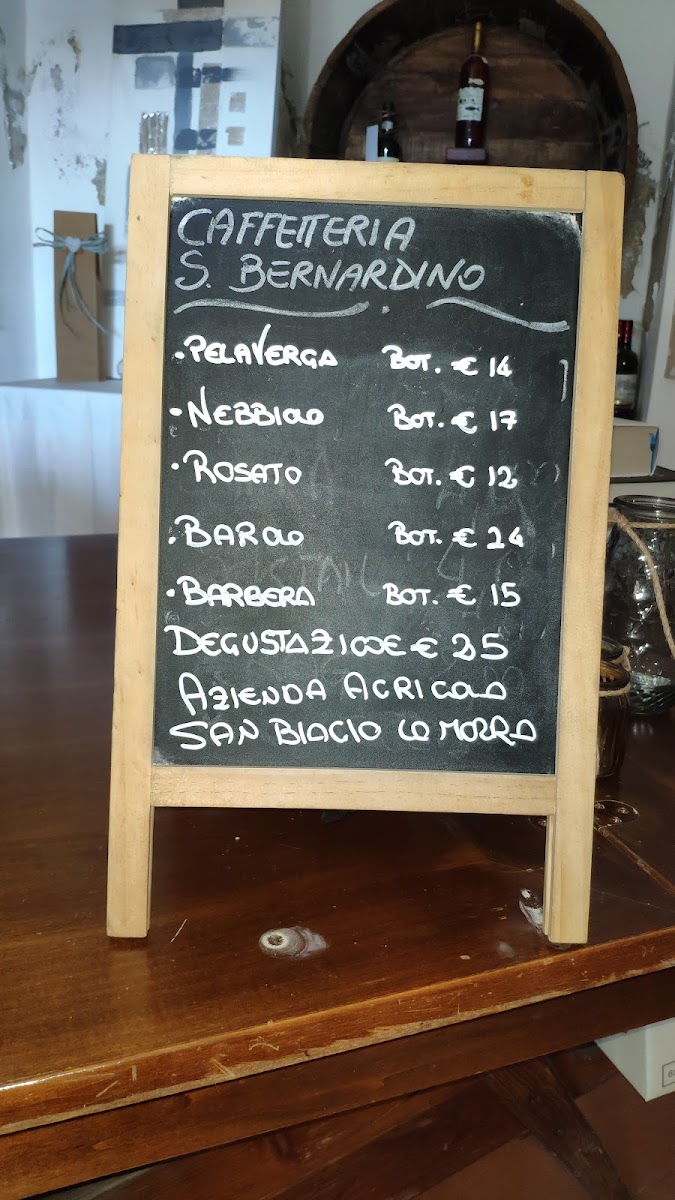 CAFFETTERIA
S. BERNARDINO
• PELAVERGA BOT. € 14
• NEBBIOLO BOT. € 17
• ROSATO BOT. € 12
• BAROLO BOT. € 24
• BARBERA BOT. € 15
DEGUSTAZIONE € 25
AZIENDA AGRICOLA
SAN BIAGIO LA MORRA